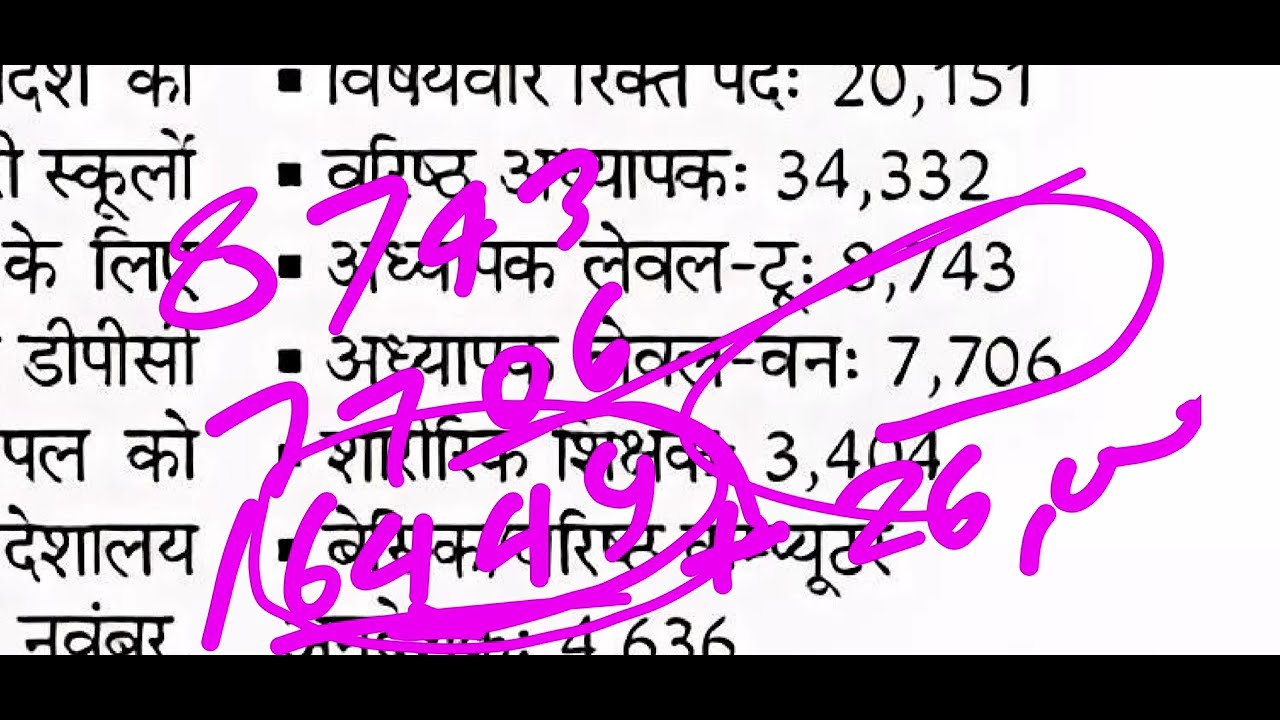 देश की ▪ विषयवार रिक्त पदः 20,151
स्कूलों ▪ वरिष्ठ अध्यापकः 34,332
के लिए ▪ अध्यापक लेवल-टूः 8,743
डीपीसी ▪ अध्यापक लेवल-वनः 7,706
पल को ▪ शारीरिक शिक्षकः 3,404
देशालय ▪ बेसिक/वरिष्ठ कम्प्यूटर
नवंबर अनुदेशकः 4,636
8743
7706
16449
+ 26,